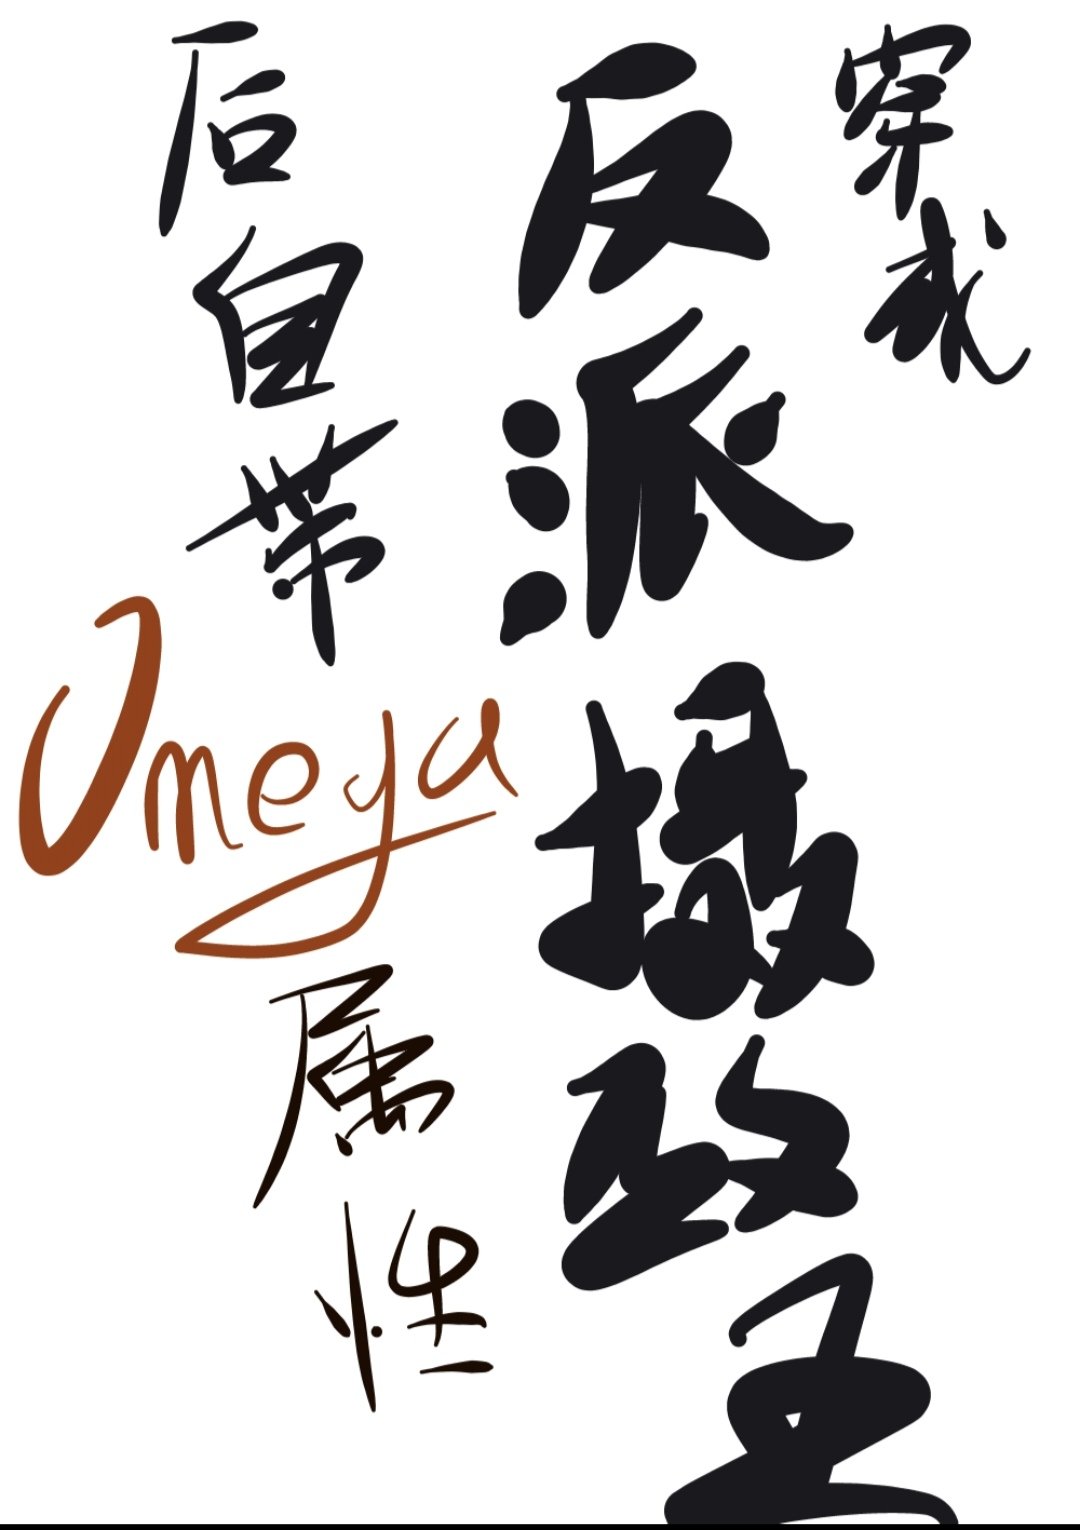 穿成
反派摄政王
后自带
Omega
属性